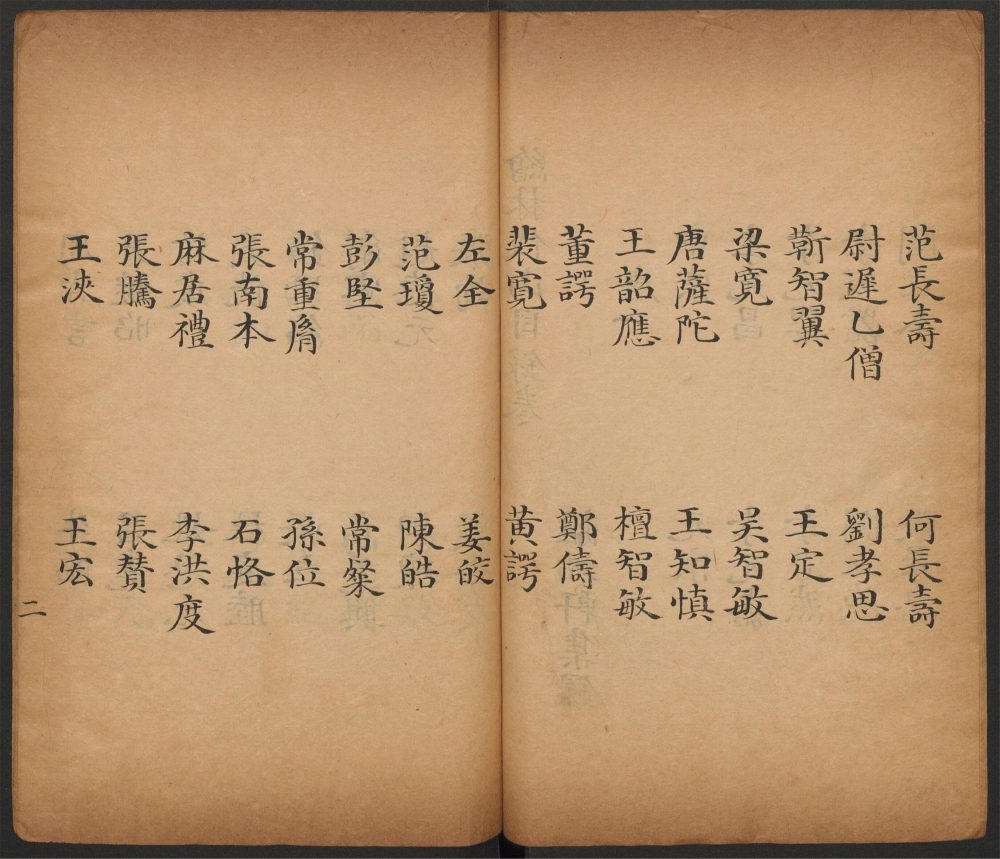 范長壽 何長壽
尉遲乙僧 劉孝思
靳智翼 王定
梁寬 吴智敏
唐薩陀 王知慎
王韶應 檀智敏
董諤 鄭儔
裴寬 黄諤
左全 姜皎
范瓊 陳皓
彭堅 常粲
常重胤 孫位
張南本 石恪
麻居禮 李洪度
張騰 張贊
王浹 王宏
二